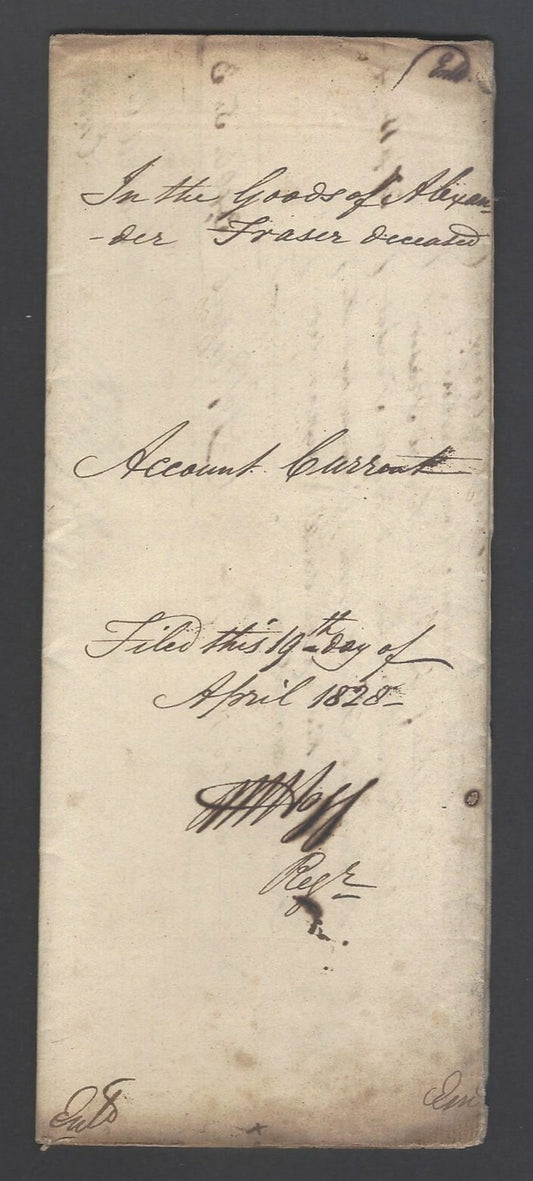 Entd
In the Goods of Alexan-
-der Fraser deceased
Account Current
Filed this 19th day of
April 1828-
Regr
Entd